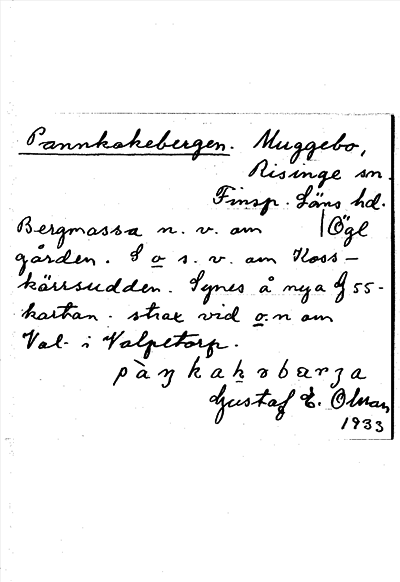 Pannkakebergen. Muggebo,
Risinge sn.
Finsp. Läns hd.
Bergmassa n. v. om | Ögl
gården. S o s. v. om Koss-
kärrsudden. Synes å nya G 55-
kartan. strax vid o. n om
Val- i Valpetorp.
pàŋkakəbærʒa
Gustaf E. Olman
1933